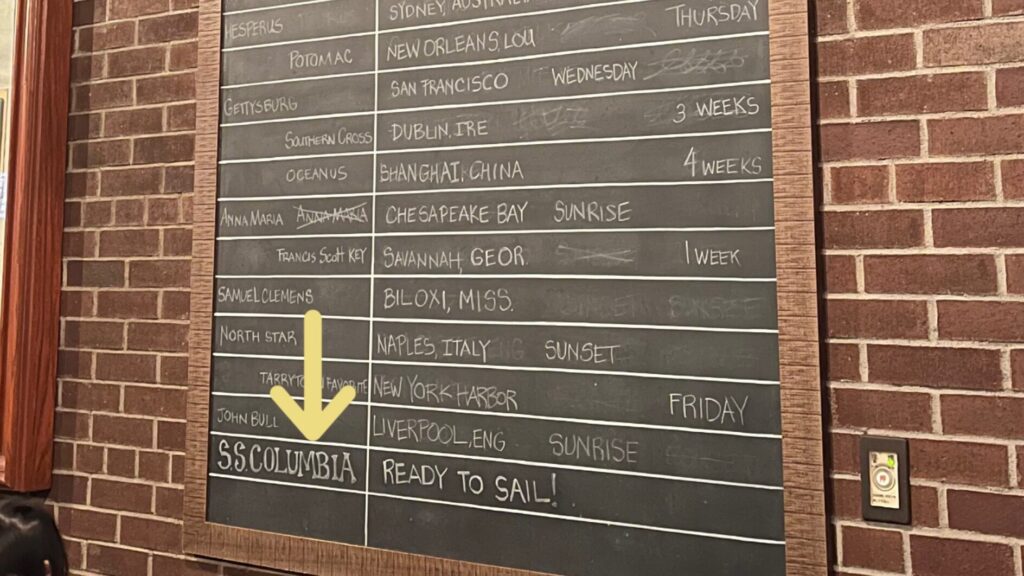 HESPERUS SYDNEY, AUSTRALIA
THURSDAY
POTOMAC NEW ORLEANS, LOU
GETTYSBURG SAN FRANCISCO WEDNESDAY
SOUTHERN CROSS DUBLIN, IRE 3 WEEKS
OCEANUS SHANGHAI, CHINA 4 WEEKS
ANNA MARIA ANNA MARIA CHESAPEAKE BAY SUNRISE
FRANCIS SCOTT KEY SAVANNAH, GEOR 1 WEEK
SAMUEL CLEMENS BILOXI, MISS. SUNSET
NORTH STAR NAPLES, ITALY SUNSET
TARRYTOWN FAVORITE NEW YORK HARBOR FRIDAY
JOHN BULL LIVERPOOL, ENG SUNRISE
S.S. COLUMBIA READY TO SAIL!